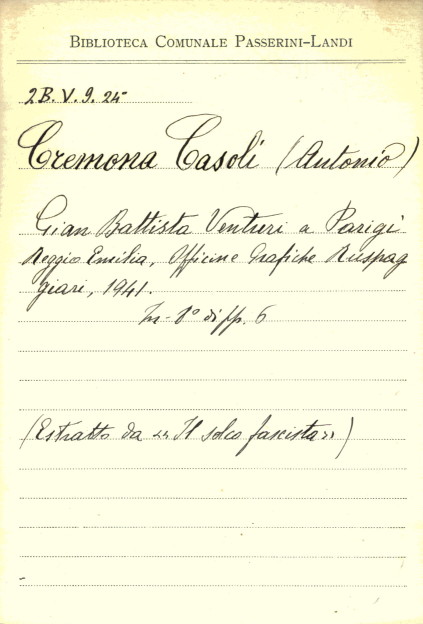 BIBLIOTECA COMUNALE PASSERINI-LANDI
2B. V. 9. 25
Cremona Casoli (Antonio)
Gian Battista Venturi a Parigi
Reggio Emilia, Officine Grafiche Ruspag
giari, 1941.
In-8° di pp. 6
(Estratto da «Il solco fascista»)